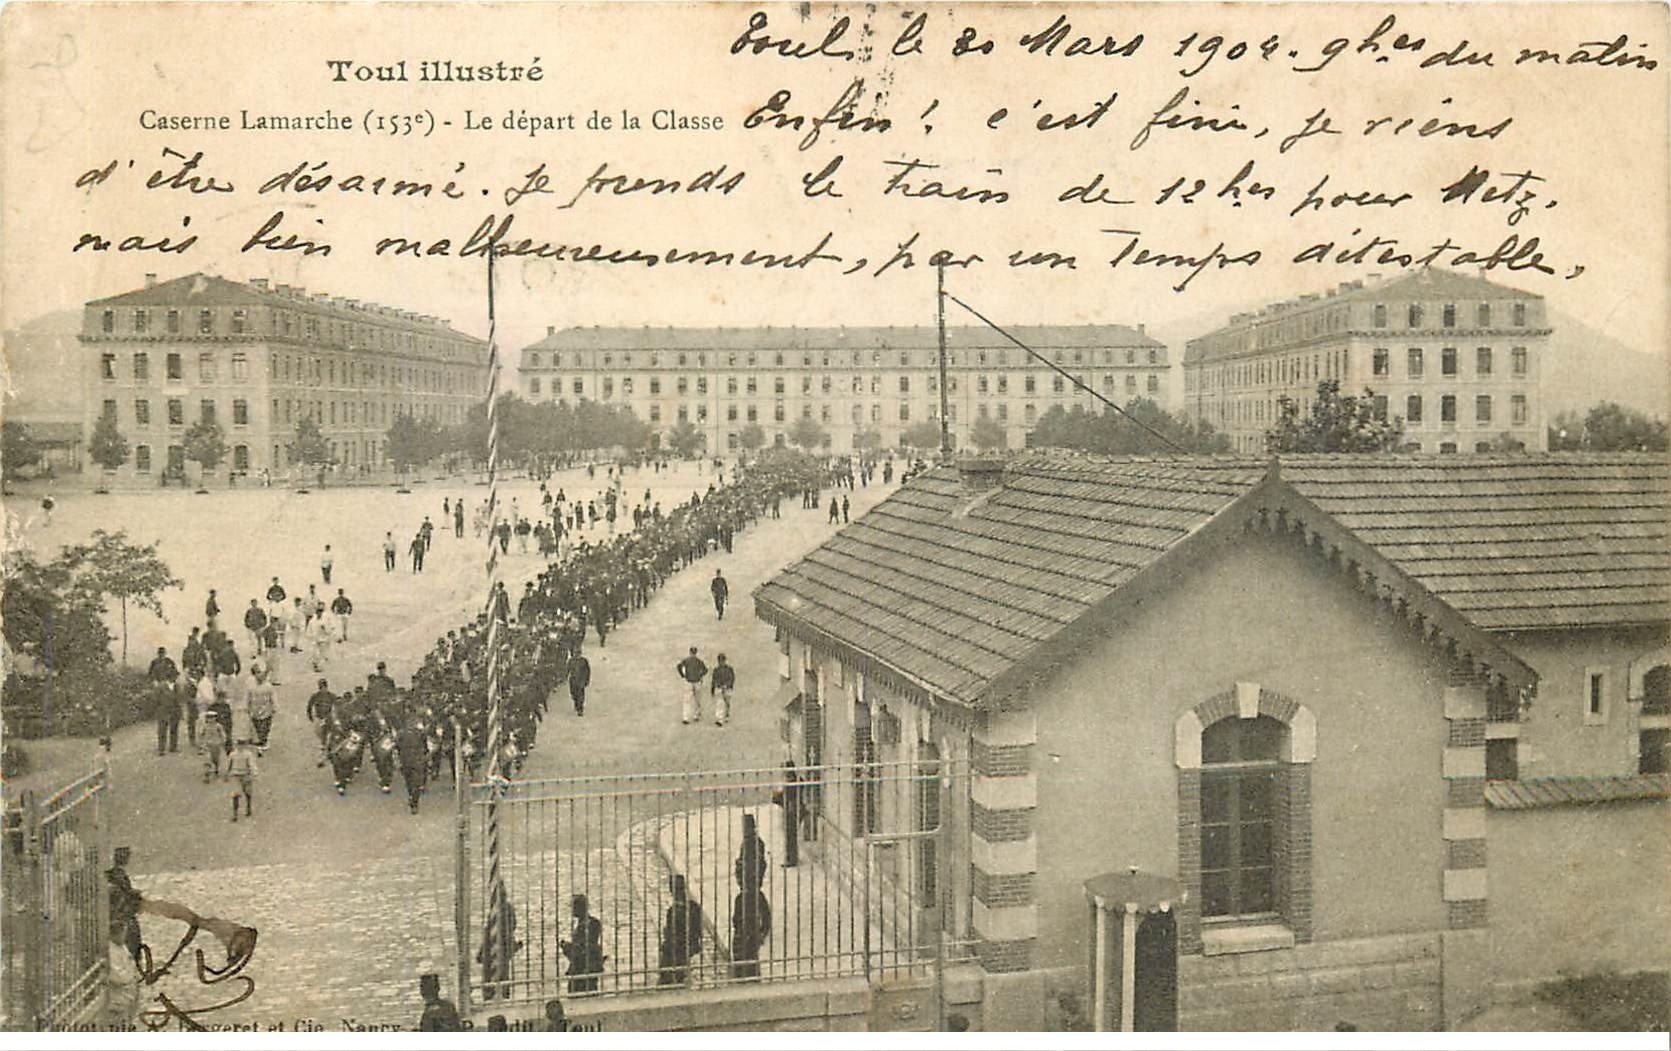 Toul, le 30 Mars 1904. 9hes du matin
Toul illustré
Caserne Lamarche (153e) - Le départ de la Classe
Enfin! c'est fini, je viens
d'être désarmé. Je prends le train de 12hes pour Metz.
mais bien malheureusement, par un temps détestable,
Phototypie A. Bergeret et Cie, Nancy - Edit. Toul